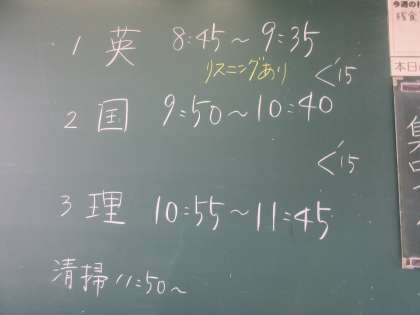 1 英 8:45～9:35
リスニングあり
<15
2 国 9:50～10:40
<15
3 理 10:55～11:45
清掃 11:50～
今週の
本日
集